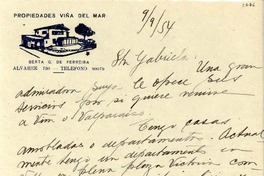 PROPIEDADES VIÑA DEL MAR
9/9/54
BERTA G. DE FERREIRA
ALVAREZ 730 - TELEFONO
Sta Gabriela. Una gran
admiradora suya le ofrece sus
servicios por si quiere venirse
a Viña o Valparaíso
Tengo casas
amobladas o departamentos. Actual
mente tengo un departamento en
plena plaza Victoria con